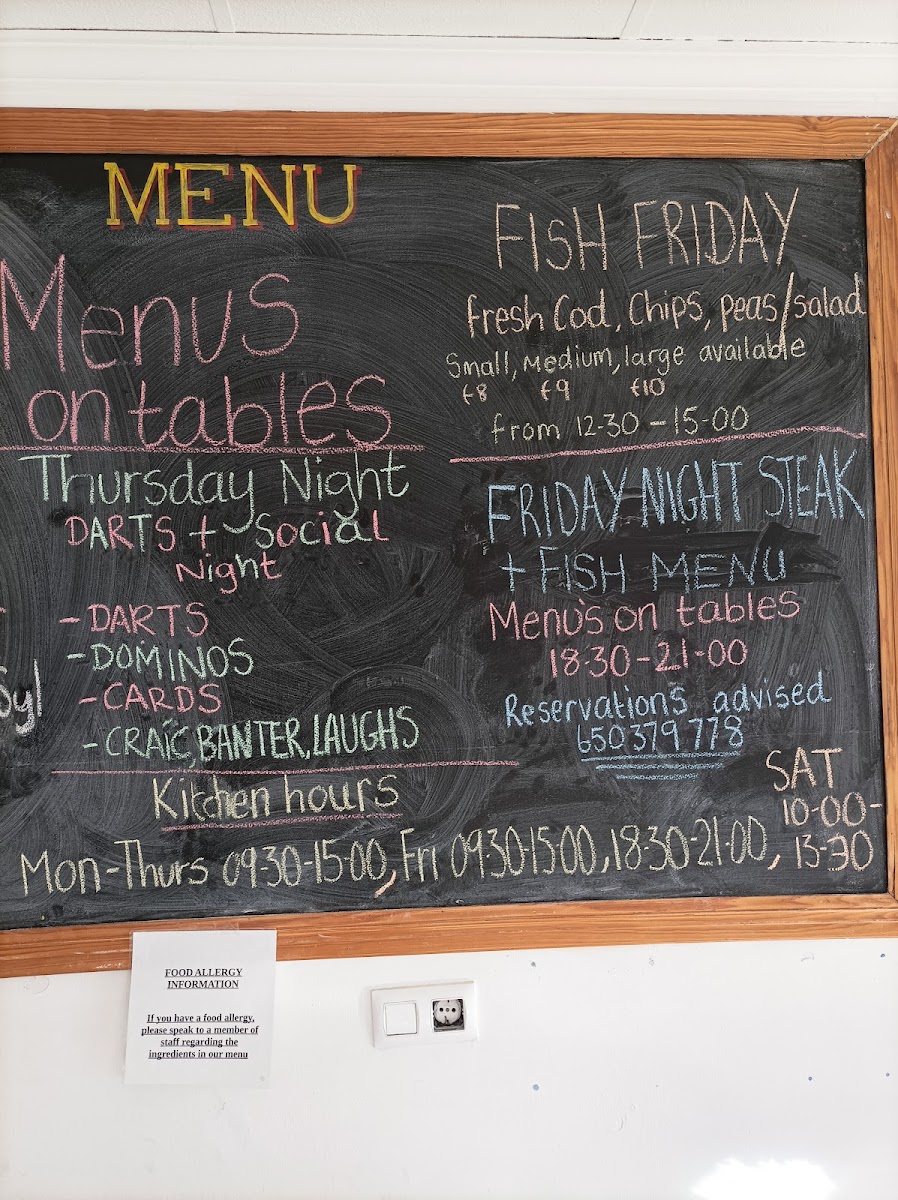 MENU
Menus
on tables
Thursday Night
DARTS + Social
Night
- DARTS
- DOMINOS
- CARDS
- CRAIC, BANTER, LAUGHS
FISH FRIDAY
fresh Cod, Chips, peas/salad
Small, Medium, large available
€8 €9 €10
from 12-30 - 15-00
FRIDAY NIGHT STEAK
+ FISH MENU
Menu's on tables
18-30 - 21-00
Reservations advised
650 379 778
Kitchen hours
Mon-Thurs 09-30-15-00, Fri 09-30-15-00, 18-30-21-00,
SAT
10-00-
13-30
FOOD ALLERGY
INFORMATION
If you have a food allergy,
please speak to a member of
staff regarding the
ingredients in our menu